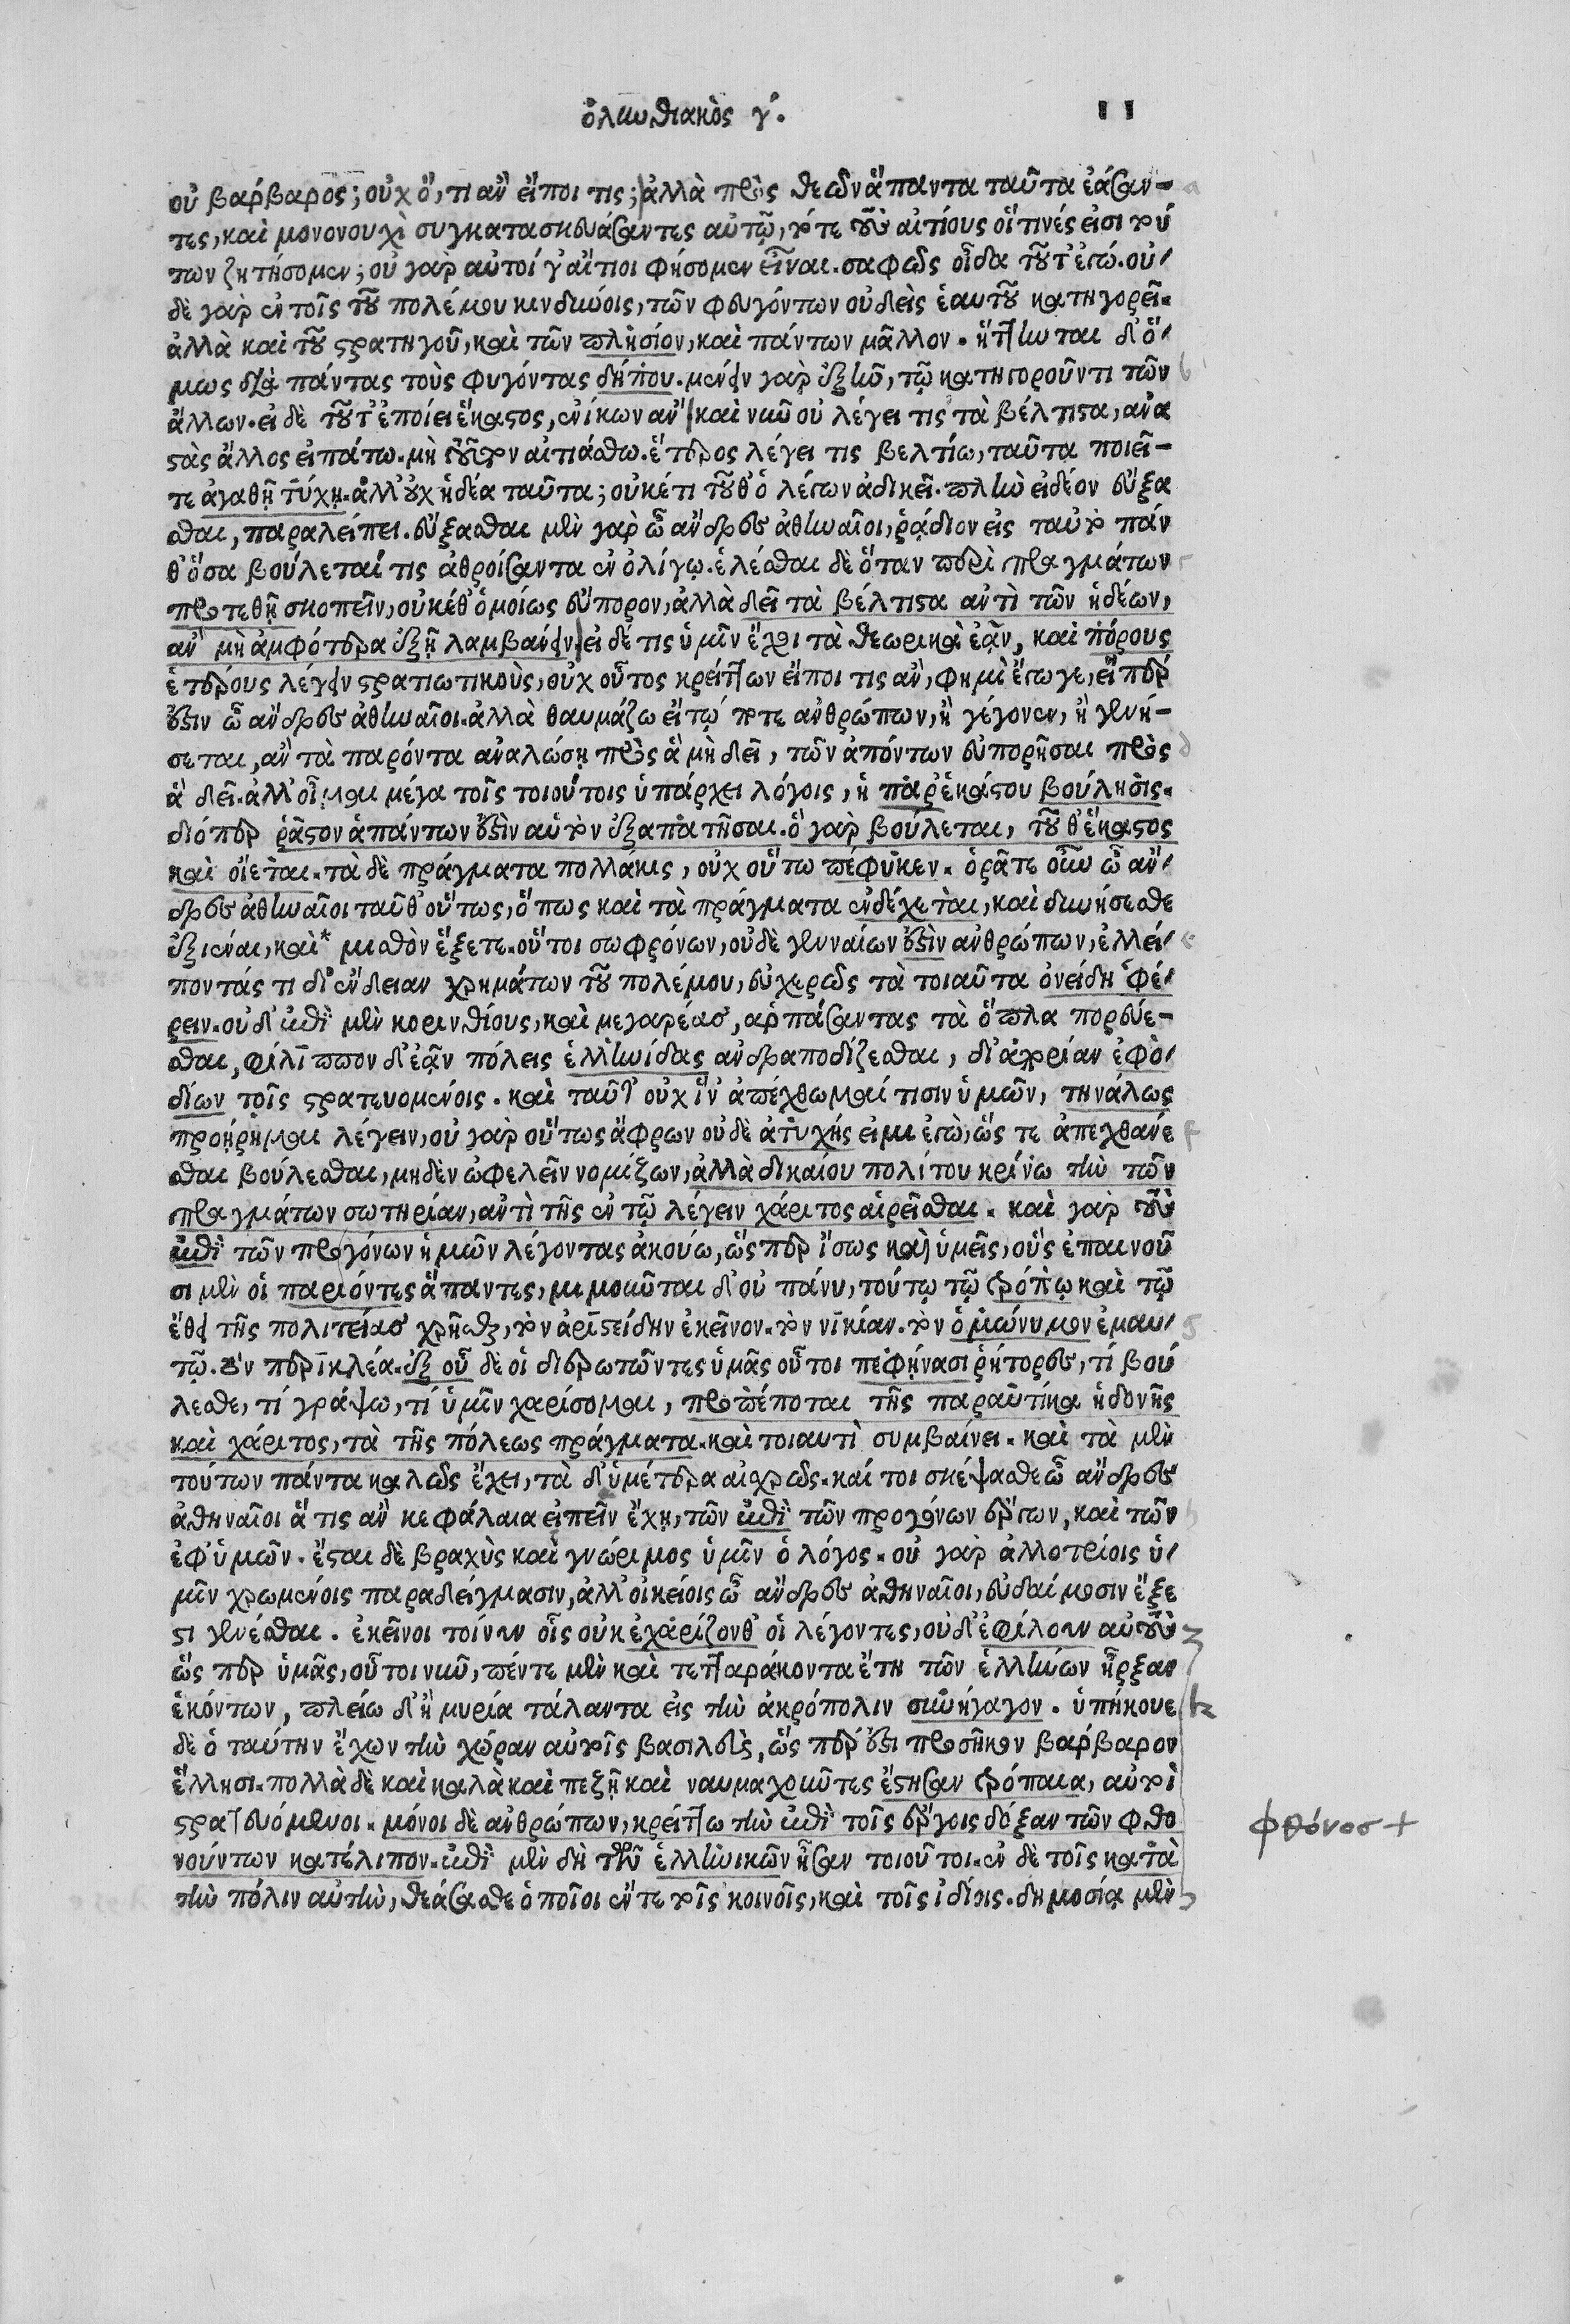 ὀλυνθιακὸς γ΄. 11
οὐ βάρβαρος; οὐχ ὅ, τι ἂν εἴποι τις; ἀλλὰ πρὸς θεῶν ἅπαντα ταῦτα ἐάσαν-
τες, καὶ μονονουχὶ συγκατασκευάσαντες αὐτῷ, τότε τοὺς αἰτίους οἵτινές εἰσι τού
των ζητήσομεν; οὐ γὰρ αὐτοί γ' αἴτιοι φήσομεν εἶναι. σαφῶς οἶδα τοῦτ' ἐγώ. οὐ-
δὲ γὰρ ἐν τοῖς τοῦ πολέμου κινδύνοις, τῶν φυγόντων οὐδεὶς ἑαυτοῦ κατηγορεῖ.
ἀλλὰ καὶ τοῦ στρατηγοῦ, καὶ τῶν πλησίον, καὶ πάντων μᾶλλον. ἥττηνται δ' ὅ-
μως διὰ πάντας τοὺς φυγόντας δήπου. μένειν γὰρ ἐξῆν, τῷ κατηγοροῦντι τῶν
ἄλλων. εἰ δὲ τοῦτ' ἐποίει ἕκαστος, ἐνίκων ἄν. καὶ νῦν οὐ λέγει τις τὰ βέλτιστα, ἀνα
στὰς ἄλλος εἰπάτω. μὴ τοῦτον αἰτιάσθω. ἕτερος λέγει τις βελτίω, ταῦτα ποιεῖ-
τε ἀγαθῇ τύχῃ. ἀλλ' οὐχ ἡδέα ταῦτα; οὐκέτι τοῦθ' ὁ λέγων ἀδικεῖ. πλὴν εἰ δέον εὔξα
σθαι, παραλείπει. εὔξασθαι μὲν γὰρ ὦ ἄνδρες ἀθηναῖοι, ῥᾴδιον εἰς ταὐτὸ πάν
θ' ὅσα βούλεταί τις ἀθροίσαντα ἐν ὀλίγῳ. ἑλέσθαι δὲ ὅταν περὶ πραγμάτων
προτεθῇ σκοπεῖν, οὐκέθ' ὁμοίως εὔπορον, ἀλλὰ δεῖ τὰ βέλτιστα ἀντὶ τῶν ἡδέων,
ἂν μὴ ἀμφότερα ἐξῇ λαμβάνειν. εἰ δέ τις ὑμῖν ἔχει τὰ θεωρικὰ ἐᾷν, καὶ πόρους
ἑτέρους λέγειν στρατιωτικοὺς, οὐχ οὗτος κρείττων εἴποι τις ἂν, φημὶ ἔγωγε, εἴπερ
ἔστιν ὦ ἄνδρες ἀθηναῖοι. ἀλλὰ θαυμάζω εἴ τῴ ποτε ἀνθρώπων, ἢ γέγονεν, ἢ γενή-
σεται, ἂν τὰ παρόντα ἀναλώσῃ πρὸς ἃ μὴ δεῖ, τῶν ἀπόντων εὐπορῆσαι πρὸς
ἃ δεῖ. ἀλλ' οἶμαι μέγα τοῖς τοιούτοις ὑπάρχει λόγοις, ἡ παρ' ἑκάστου βούλησις.
διόπερ ῥᾷστον ἁπάντων ἐστὶν αὑτὸν ἐξαπατῆσαι. ὃ γὰρ βούλεται, τοῦθ' ἕκαστος
καὶ οἴεται. τὰ δὲ πράγματα πολλάκις, οὐχ οὕτω πέφυκεν. ὁρᾶτε οὖν ὦ ἄν-
δρες ἀθηναῖοι ταῦθ' οὕτως, ὅπως καὶ τὰ πράγματα ἐνδέχεται, καὶ δυνήσεσθε
ἐξιέναι, καὶ* μισθὸν ἕξετε. οὔτοι σωφρόνων, οὐδὲ γενναίων ἐστὶν ἀνθρώπων, ἐλλεί-
ποντάς τι δι' ἔνδειαν χρημάτων τοῦ πολέμου, εὐχερῶς τὰ τοιαῦτα ὀνείδη φέ-
ρειν. οὐδ' ἐπὶ μὲν κορινθίους, καὶ μεγαρέας, ἁρπάσαντας τὰ ὅπλα πορεύε-
σθαι, φίλιππον δ' ἐᾷν πόλεις ἑλληνίδας ἀνδραποδίζεσθαι, δι' ἀχρείαν ἐφο-
δίων τοῖς στρατευομένοις. καὶ ταῦτ' οὐχ ἵν' ἀπέχθωμαί τισιν ὑμῶν, τηνάλως
προῄρημαι λέγειν, οὐ γὰρ οὕτως ἄφρων οὐδὲ ἀτυχής εἰμι ἐγὼ, ὥς τε ἀπεχθάνε
σθαι βούλεσθαι, μηδὲν ὠφελεῖν νομίζων, ἀλλὰ δικαίου πολίτου κρίνω τὴν τῶν
πραγμάτων σωτηρίαν, ἀντὶ τῆς ἐν τῷ λέγειν χάριτος αἱρεῖσθαι. καὶ γὰρ τοὺς
ἐπὶ τῶν προγόνων ἡμῶν λέγοντας ἀκούω, ὥς περ ἴσως καὶ ὑμεῖς, οὓς ἐπαινοῦ
σι μὲν οἱ παριόντες ἅπαντες, μιμοῦνται δ' οὐ πάνυ, τούτῳ τῷ τρόπῳ καὶ τῷ
ἔθει τῆς πολιτείας χρῆσθαι, τὸν ἀριστείδην ἐκεῖνον. τὸν νικίαν. τὸν ὁμώνυμον ἐμαυ-
τῷ. τὸν περικλέα. ἐξ οὗ δὲ οἱ διερωτῶντες ὑμᾶς οὗτοι πεφήνασι ῥήτορες, τί βού
λεσθε, τί γράψω, τί ὑμῖν χαρίσομαι, προπέποται τῆς παραυτίκα ἡδονῆς
καὶ χάριτος, τὰ τῆς πόλεως πράγματα. καὶ τοιαυτὶ συμβαίνει. καὶ τὰ μὲν
τούτων πάντα καλῶς ἔχει, τὰ δ' ὑμέτερα αἰσχρῶς. καί τοι σκέψασθε ὦ ἄνδρες
ἀθηναῖοι ἅ τις ἂν κεφάλαια εἰπεῖν ἔχῃ, τῶν ἐπὶ τῶν προγόνων ἔργων, καὶ τῶν
ἐφ' ὑμῶν. ἔσται δὲ βραχὺς καὶ γνώριμος ὑμῖν ὁ λόγος. οὐ γὰρ ἀλλοτρίοις ὑ-
μῖν χρωμένοις παραδείγμασιν, ἀλλ' οἰκείοις ὦ ἄνδρες ἀθηναῖοι, εὐδαίμοσιν ἔξε
στι γενέσθαι. ἐκεῖνοι τοίνυν οἷς οὐκ ἐχαρίζονθ' οἱ λέγοντες, οὐδ' ἐφίλουν αὐτοὺς
ὥς περ ὑμᾶς, οὗτοι νῦν, πέντε μὲν καὶ τετταράκοντα ἔτη τῶν ἑλλήνων ἦρξαν
ἑκόντων, πλείω δ' ἢ μυρία τάλαντα εἰς τὴν ἀκρόπολιν συνήγαγον. ὑπήκουε
δὲ ὁ ταύτην ἔχων τὴν χώραν αὐτοῖς βασιλεὺς, ὥς περ ἐστι προσῆκον βάρβαρον
ἕλλησι. πολλὰ δὲ καὶ καλὰ καὶ πεζῇ καὶ ναυμαχοῦντες ἔστησαν τρόπαια, αὐτοὶ
στρατευόμενοι. μόνοι δὲ ἀνθρώπων, κρείττω τὴν ἐπὶ τοῖς ἔργοις δόξαν τῶν φθο
νούντων κατέλιπον. ἐπὶ μὲν δὴ τῶν ἑλληνικῶν ἦσαν τοιοῦτοι. ἐν δὲ τοῖς κατὰ
τὴν πόλιν αὐτὴν, θεάσασθε ὁποῖοι ἔν τε τοῖς κοινοῖς, καὶ τοῖς ἰδίοις. δημοσίᾳ μὲν
φθόνος +